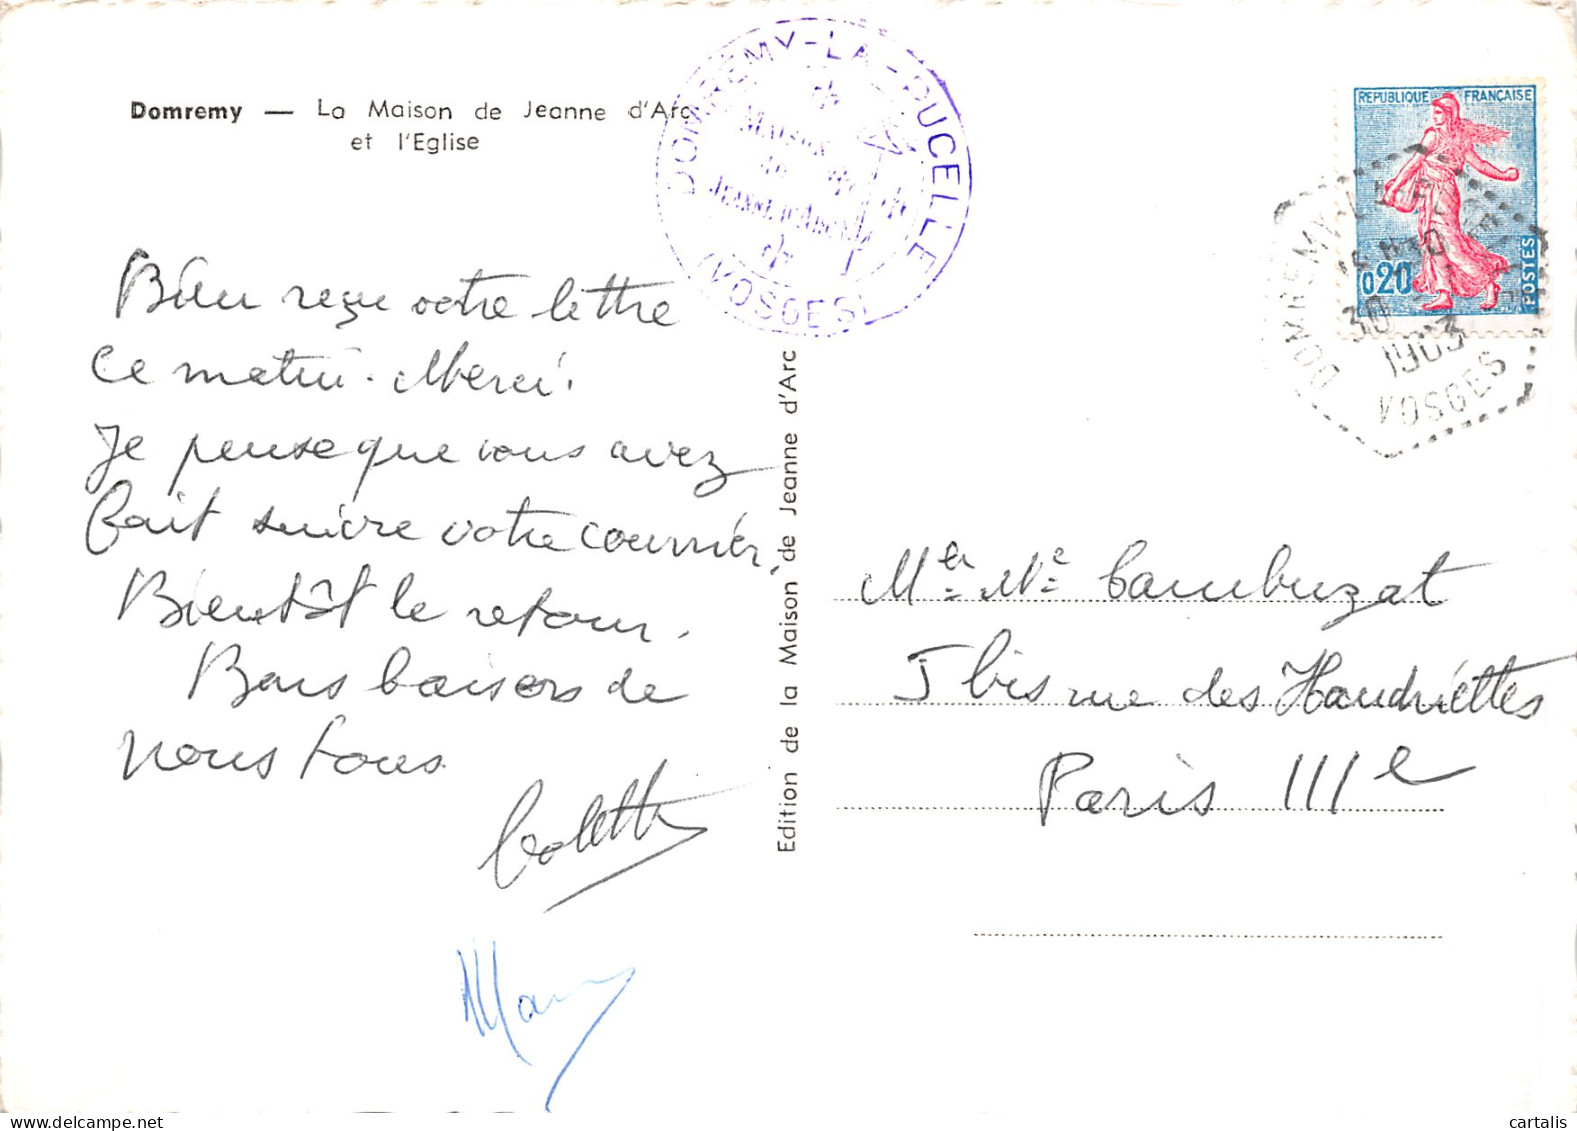 Domremy — La Maison de Jeanne d'Arc
et l'Eglise
DOMREMY-LA-PUCELLE
MAISON
JEANNE D'ARC
(VOSGES)
REPUBLIQUE FRANÇAISE
0,20
POSTES
DOMREMY-LA-PUCELLE
30
VOSGES
Bien reçu votre lettre
ce matin. Merci.
Je pense que vous avez
fait suivre votre courrier.
Bientôt le retour.
Bons baisers de
nous tous
Colette
Edition de la Maison de Jeanne d'Arc
Mr et Me Cambuzat
5 bis rue des Haudriettes
Paris IIIe
cartalis
delcampe.net